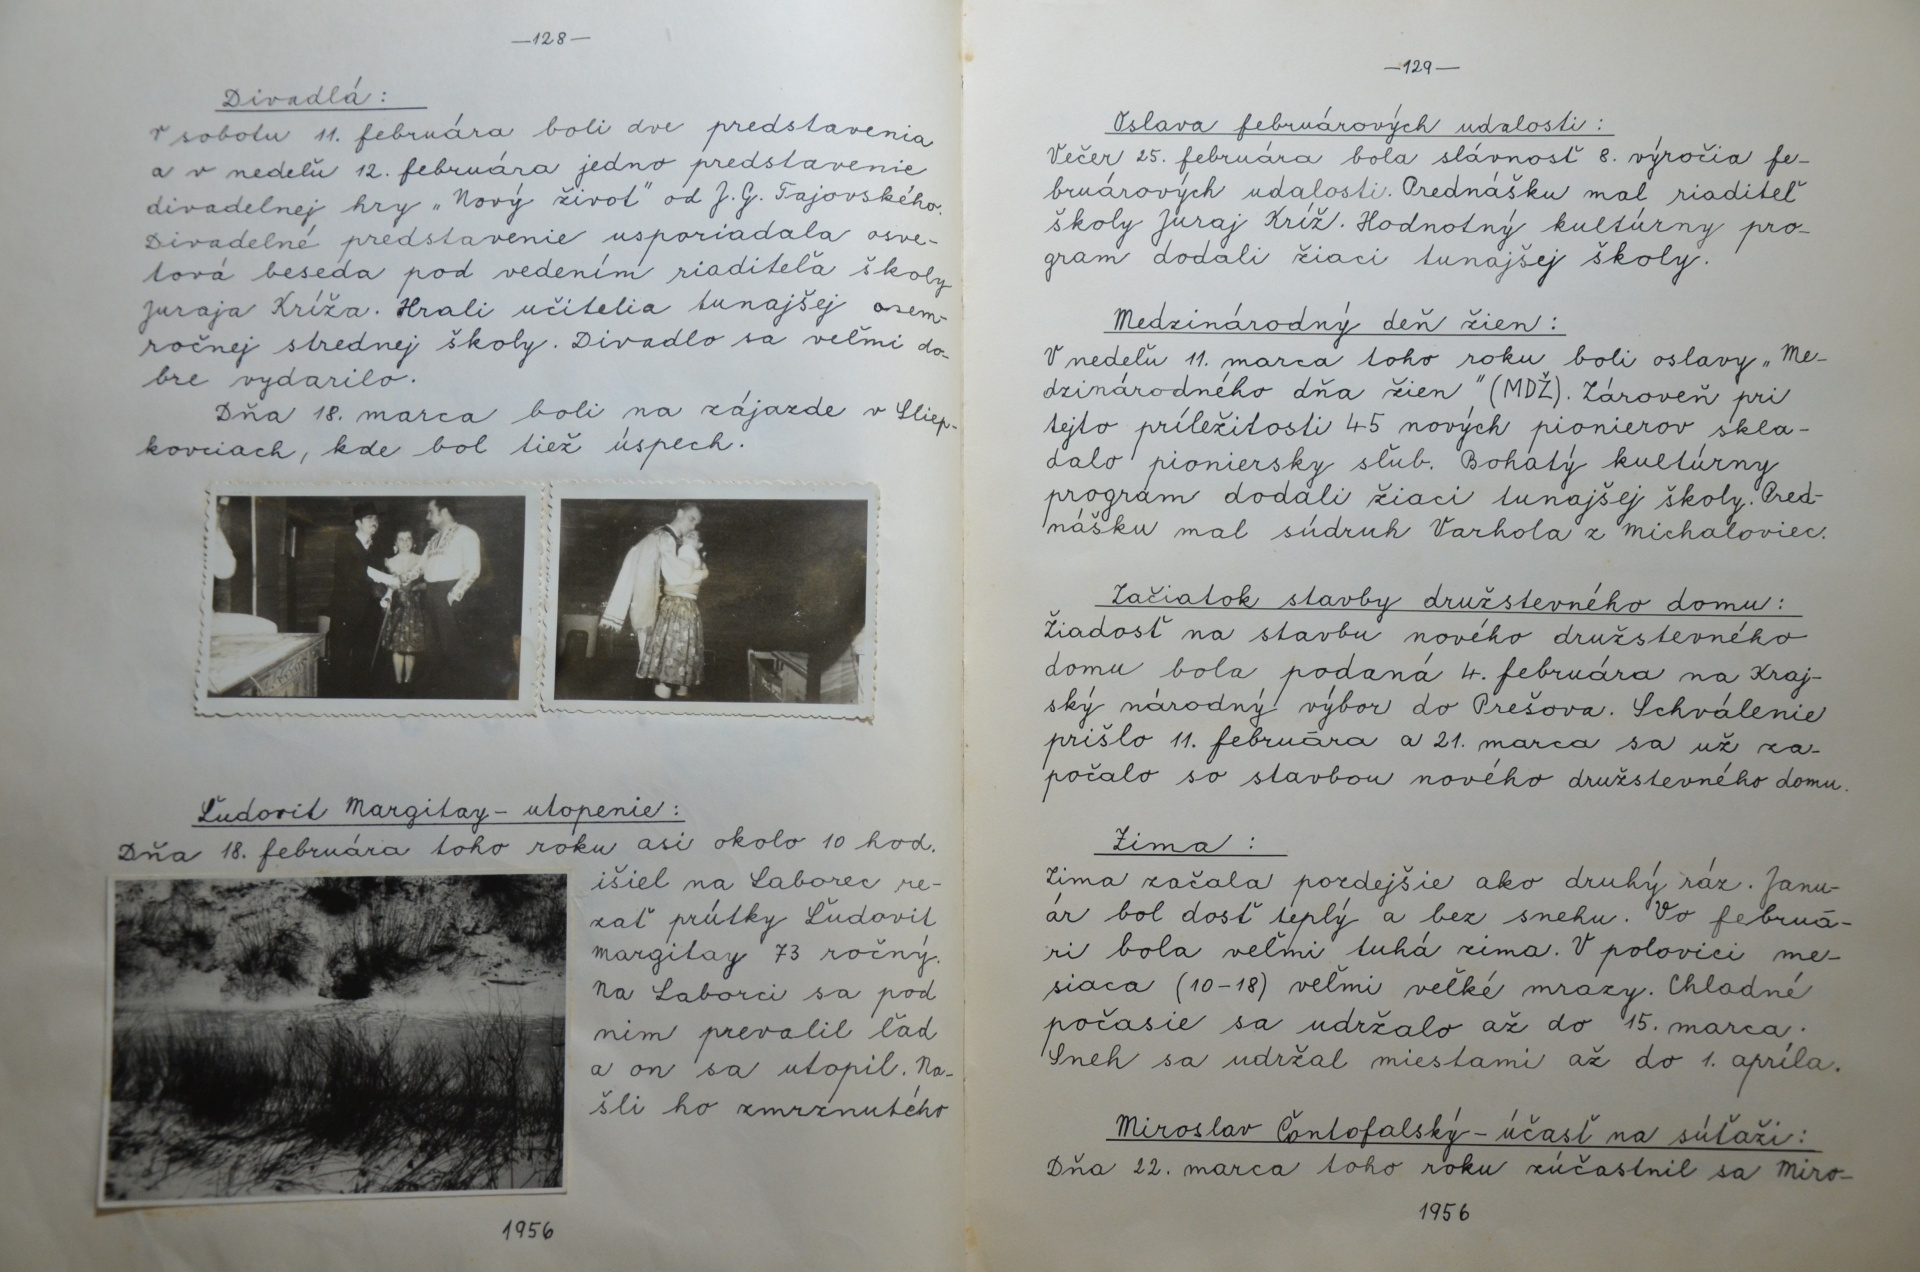 —128—
Divadlá:
V sobotu 11. februára boli dve predstavenia
a v nedeľu 12. februára jedno predstavenie
divadelnej hry „Nový život" od J. G. Tajovského.
Divadelné predstavenie usporiadala osve-
tová beseda pod vedením riaditeľa školy
Juraja Kríža. Hrali učitelia tunajšej osem-
ročnej strednej školy. Divadlo sa veľmi do-
bre vydarilo.
Dňa 18. marca boli na zájazde v Sliep-
kovciach, kde bol tiež úspech.
Ľudovit Margitay – utopenie:
Dňa 18. februára toho roku asi okolo 10 hod.
išiel na Laborec re-
zať prútky Ľudovit
Margitay 73 ročný.
Na Laborci sa pod
nim prevalil ľad
a on sa utopil. Na-
šli ho zmrznutého
1956
—129—
Oslava februárových udalosti:
Večer 25. februára bola slávnosť 8. výročia fe-
bruárových udalosti. Prednášku mal riaditeľ
školy Juraj Kríž. Hodnotný kultúrny pro-
gram dodali žiaci tunajšej školy.
Medzinárodný deň žien:
V nedeľu 11. marca toho roku boli oslavy „Me-
dzinárodného dňa žien" (MDŽ). Zároveň pri
tejto príležitosti 45 nových pionierov skla-
dalo pioniersky sľub. Bohatý kultúrny
program dodali žiaci tunajšej školy. Pred-
nášku mal súdruh Varhola z Michaloviec.
Začiatok stavby družstevného domu:
Žiadosť na stavbu nového družstevného
domu bola podaná 4. februára na Kraj-
ský národný výbor do Prešova. Schválenie
prišlo 11. februára a 21. marca sa už za-
počalo so stavbou nového družstevného domu.
Zima :
Zima začala pozdejšie ako druhý ráz. Janu-
ár bol dosť teplý a bez snehu. Vo februá-
ri bola veľmi tuhá zima. V polovici me-
siaca (10-18) veľmi veľké mrazy. Chladné
počasie sa udržalo až do 15. marca.
Sneh sa udržal miestami až do 1. apríla.
Miroslav Čontofalský – účasť na súťaži:
Dňa 22. marca toho roku zúčastnil sa Miro-
1956